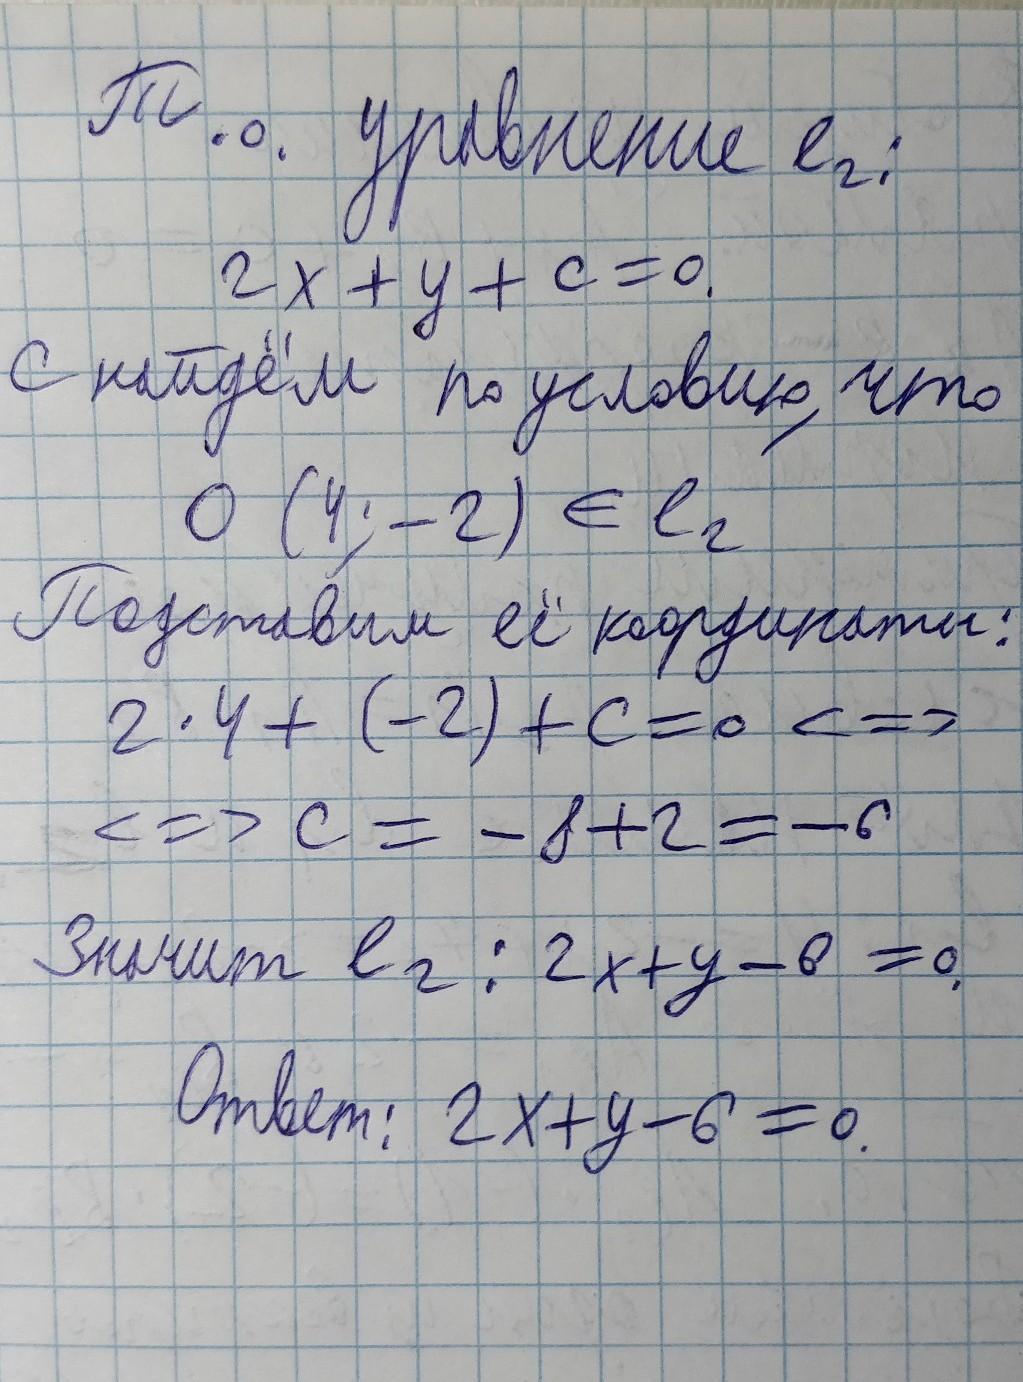 Т.о. уравнение l₂:
2x + y + c = 0.
C найдём по условию, что
O (4; -2) ∈ l₂
Подставим её координаты:
2 · 4 + (-2) + C = 0 <=>
<=> C = -8 + 2 = -6
Значит l₂: 2x + y - 6 = 0.
Ответ: 2x + y - 6 = 0.